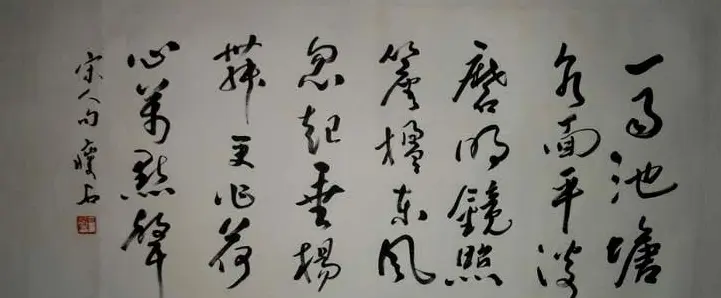 一雨池塘
水面平淡
磨明鏡照
簷楹東風
忽起垂楊
舞更作荷
心萬點聲
宋人句 瘦石